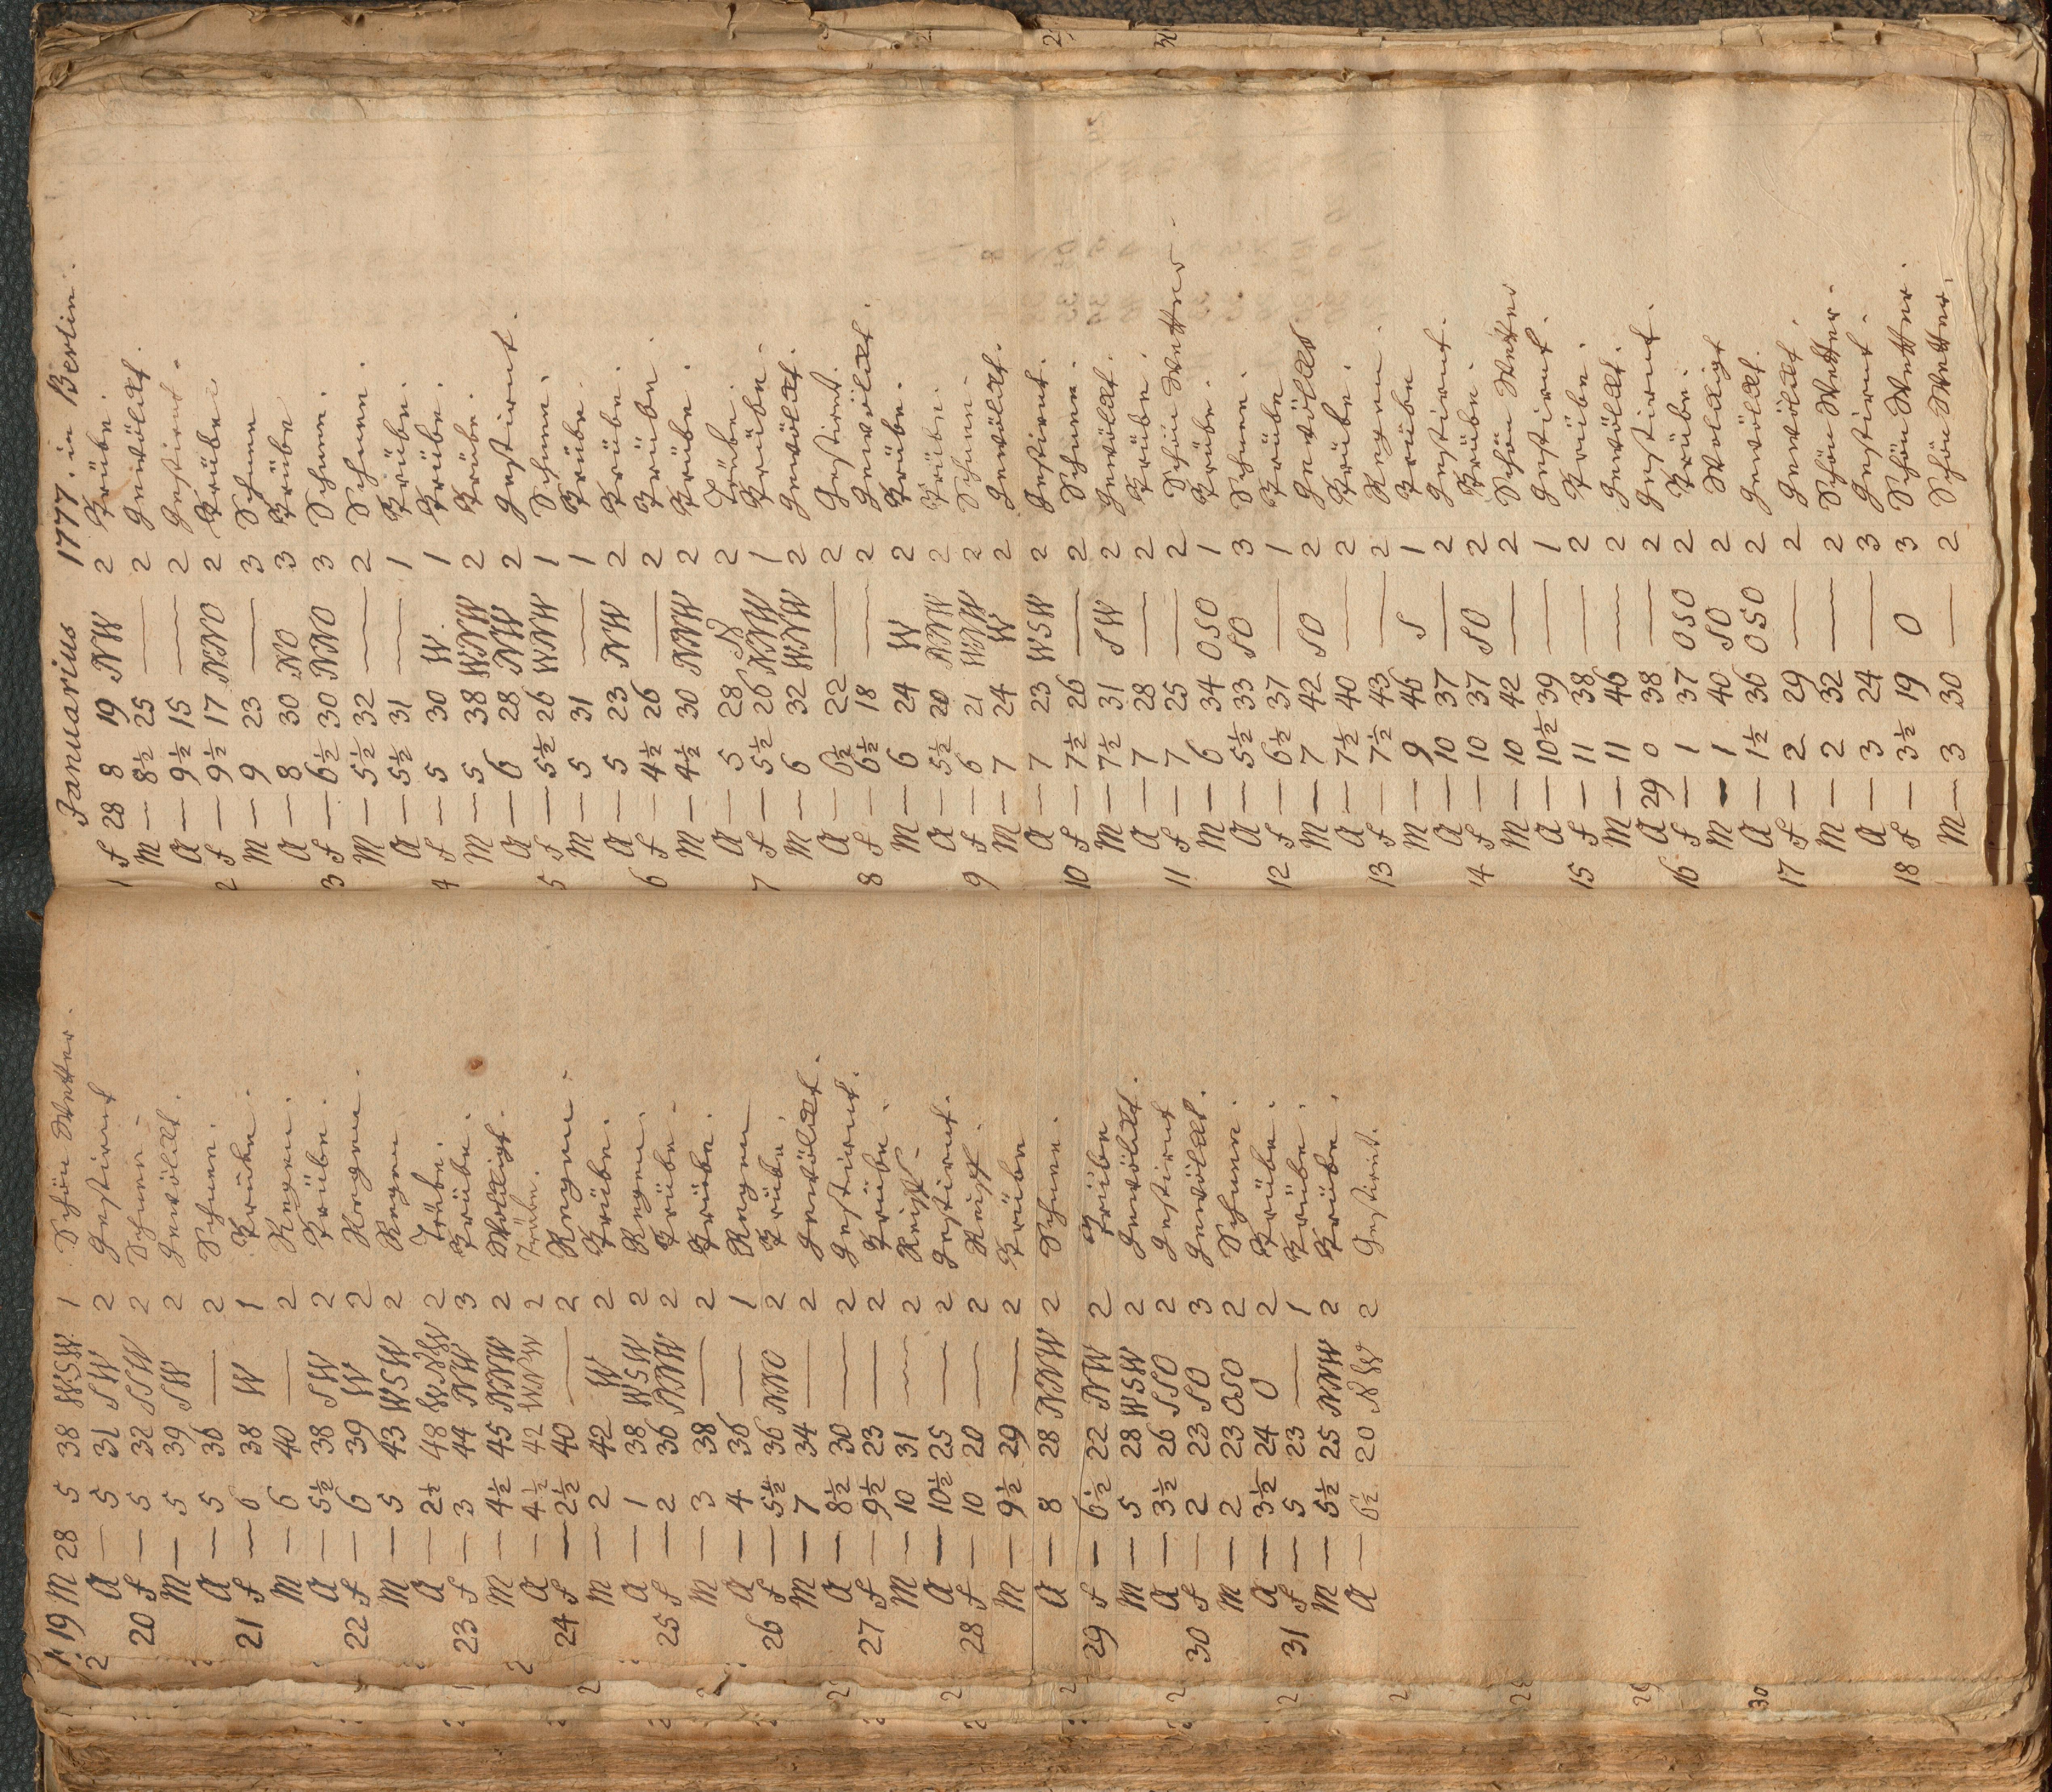 Januarius 1777. in Berlin.
1 f 28 8 19 NW 2 Trübe.
M — 8½ 25 — 2 Gewölkt.
A — 9½ 15 — 2 Gestirnt.
2 f — 9½ 17 NNO 2 Trübe
M — 9 23 — 3 Schnee
A — 8 30 NO 3 Trübe
3 f — 6½ 30 NNO 3 Schnee.
M — 5½ 32 — 2 Schnee.
A — 5½ 31 — 1 Trübe.
4 f — 5 30 W. 1 Trübe.
M — 5 38 WNW 2 Trübe.
A — 6 28 NW 2 Gestirnt.
5 f — 5½ 26 WNW 1 Schnee.
M — 5 31 — 1 Trübe.
A — 5 23 NW 2 Trübe.
6 f — 4½ 26 — 2 Trübe.
M — 4½ 30 NNW 2 Trübe.
A — 5 28 N 2 Trübe.
7 f — 5½ 26 NNW 1 Trübe.
M — 6 32 WNW 2 Gewölkt.
A — 6½ 22 — 2 Gestirnt.
8 f — 6½ 18 — 2 Gewölkt.
M — 6 24 W 2 Trübe.
A — 5½ 20 NNW 2 Trübe.
9 f — 6 21 WNW 2 Schnee.
M — 7 24 W 2 Gewölkt.
A — 7 23 WSW 2 Gestirnt.
10 f — 7½ 26 — 2 Schnee.
M — 7½ 31 SW 2 Gewölkt.
A — 7 28 — 2 Trübe.
11 f — 7 25 — 2 Schön Wetter.
M — 6 34 OSO 1 Trübe.
A — 5½ 33 SO 3 Schnee.
12 f — 6½ 37 — 1 Trübe
M — 7 42 SO 2 Gewölkt
A — 7½ 40 — 2 Trübe.
13 f — 7½ 43 — 2 Regen.
M — 9 46 S 1 Trübe
A — 10 37 — 2 Gestirnt.
14 f — 10 37 SO 2 Trübe.
M — 10 42 — 2 Schön Wetter
A — 10½ 39 — 1 Gestirnt.
15 f — 11 38 — 2 Trübe.
M — 11 46 — 2 Gewölkt.
A 29 0 38 — 2 Gestirnt.
16 f — 1 37 OSO 2 Trübe.
M — 1 40 SO 2 Wolkigt
A — 1½ 36 OSO 2 Gewölkt.
17 f — 2 29 — 2 Gewölkt.
M — 2 32 — 2 Schön Wetter.
A — 3 24 — 3 Gestirnt.
18 f — 3½ 19 O 3 Schön Wetter.
M — 3 30 — 2 Schön Wetter.
19 M 28 5 38 WSW 1 Schön Wetter.
A — 5 31 SW 2 Gestirnt
20 f — 5 32 SSW 2 Schnee.
M — 5 39 SW 2 Gewölkt.
A — 5 36 — 2 Schnee.
21 f — 6 38 W 1 Trübe.
M — 6 40 — 2 Regen.
A — 5½ 38 SW 2 Trübe.
22 f — 6 39 W 2 Regen.
M — 5 43 WSW 2 Regen
A — 2½ 48 WNW 2 Trübe.
23 f — 3 44 NW 3 Trübe.
M — 4½ 45 NNW 2 Wolkigt.
A — 4½ 42 WNW 2 Trübe.
24 f — 2½ 40 — 2 Regen.
M — 2 42 W 2 Trübe.
A — 1 38 WSW 2 Regen.
25 f — 2 36 NNW 2 Trübe.
M — 3 38 — 2 Trübe.
A — 4 36 — 1 Regen
26 f — 5½ 36 NNO 2 Trübe.
M — 7 34 — 2 Gewölkt.
A — 8½ 30 — 2 Gestirnt.
27 f — 9½ 23 — 2 Trübe.
M — 10 31 — 2 Reif.
A — 10½ 25 — 2 Gestirnt.
28 f — 10 20 — 2 Reif.
M — 9½ 29 — 2 Trübe
A — 8 28 NNW 2 Schnee.
29 f — 6½ 22 NW 2 Trübe
M — 5 28 WSW 2 Gewölkt.
A — 3½ 26 SSO 2 Gestirnt
30 f — 2 23 SO 3 Gewölkt.
M — 2 23 OSO 2 Schnee.
A — 3½ 24 O 2 Trübe.
31 f — 5 23 — 1 Trübe.
M — 5½ 25 NNW 2 Trübe.
A — 6½ 20 NW 2 Gestirnt.